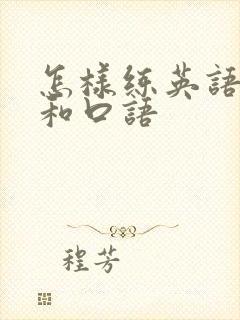 怎樣练英語
和口語
程芳